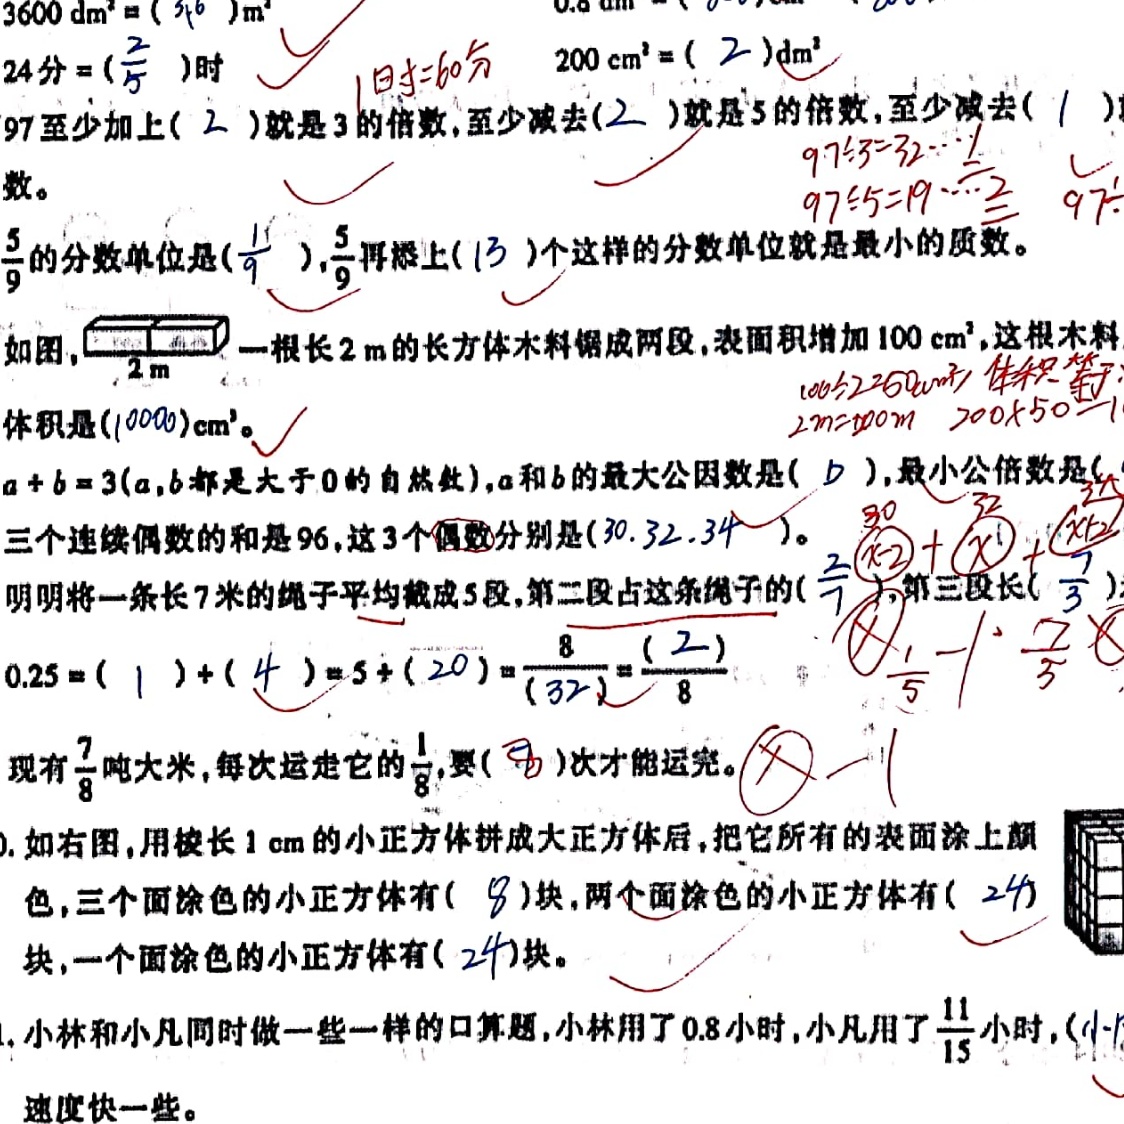 3600 dm² = ( 36 )m²
24分 = ( 2/5 )时
1时=60分
200 cm² = ( 2 )dm²
97至少加上( 2 )就是3的倍数,至少减去( 2 )就是5的倍数,至少减去( 1 )
数。
97÷3=32……1
97÷5=19……2
97÷
5/9的分数单位是( 1/9 ),5/9再添上( 13 )个这样的分数单位就是最小的质数。
如图, 2 m 一根长2 m的长方体木料锯成两段,表面积增加100 cm²,这根木料
体积是(10000)cm³。
200×50=1
a + b = 3(a,b都是大于0的自然数),a和b的最大公因数是( b ),最小公倍数是(
三个连续偶数的和是96,这3个偶数分别是(30.32.34 )。
30 32
x-2 + x + x+2
明明将一条长7米的绳子平均截成5段,第二段占这条绳子的( 2/7 ),第三段长( 7/3 )
1/5 -1 7/5
0.25 = ( 1 ) ÷ ( 4 ) = 5 ÷ ( 20 ) = 8/(32) = (2)/8
现有7/8吨大米,每次运走它的1/8,要( 8 )次才能运完。 -1
. 如右图,用棱长1 cm的小正方体拼成大正方体后,把它所有的表面涂上颜
色,三个面涂色的小正方体有( 8 )块,两个面涂色的小正方体有( 24)
块,一个面涂色的小正方体有( 24)块。
. 小林和小凡同时做一些一样的口算题,小林用了0.8小时,小凡用了11/15小时,(小
速度快一些。